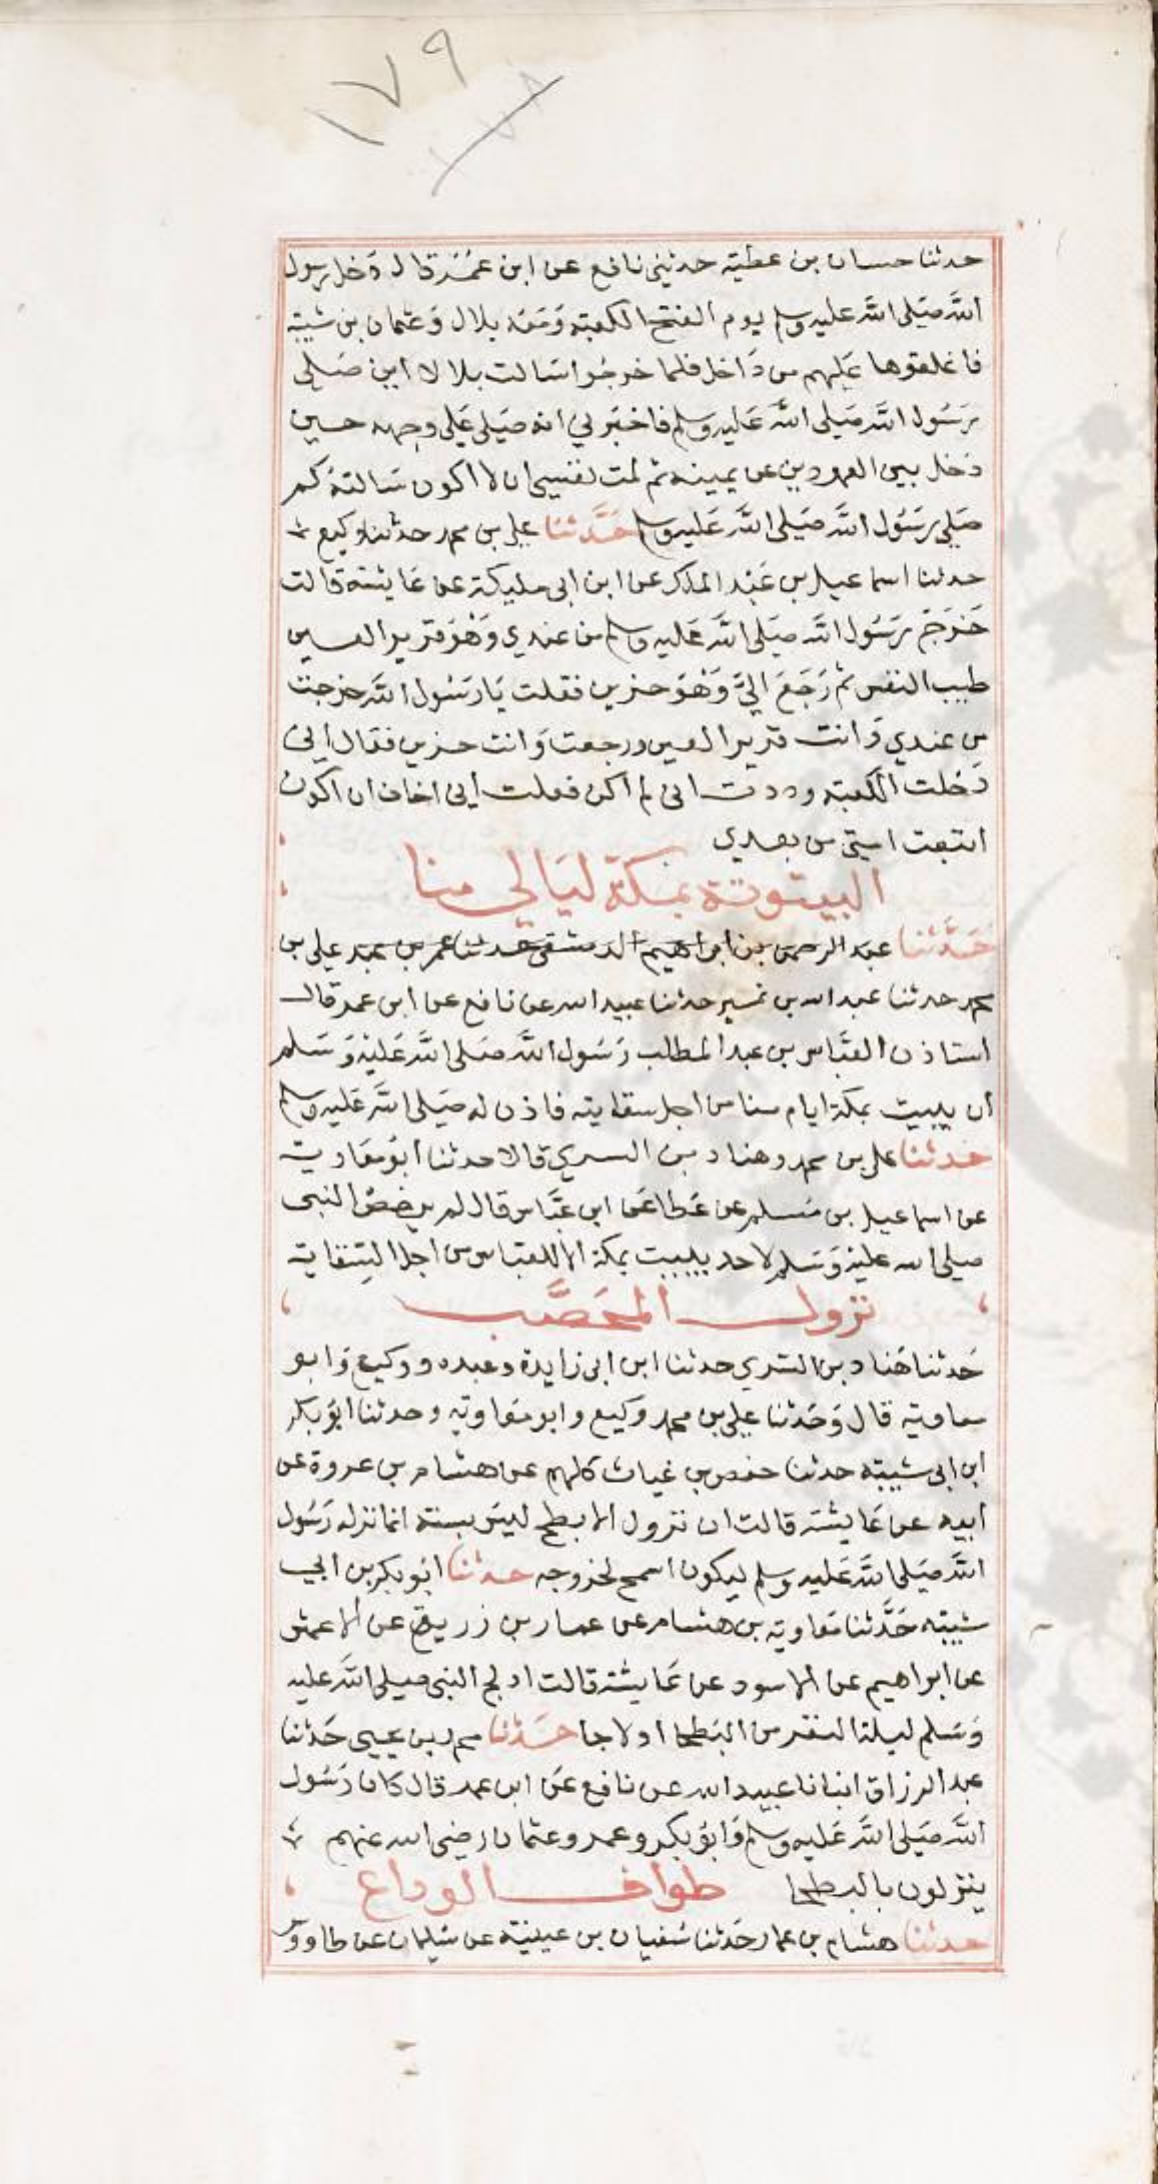 ١٧٩
١٧٨
حدثنا حسان بن عطية حدثني نافع عن ابن عمر قال دخل رسول
الله صلى الله عليه وسلم يوم الفتح الكعبة ومعه بلال وعثمان بن شيبة
فاغلقوها عليهم من داخل فلما خرجوا سالت بلالا اين صلى
رسول الله صلى الله عليه وسلم فاخبرني انه صلى على وجهه حين
دخل بين العمودين عن يمينه ثم لمت نفسي ان لا اكون سالته كم
صلى رسول الله صلى الله عليه وسلم حدثنا علي بن محمد حدثنا وكيع
حدثنا اسماعيل بن عبد الملك عن ابن ابي مليكة عن عايشة قالت
خرج رسول الله صلى الله عليه وسلم من عندي وهو قرير العين
طيب النفس ثم رجع الي وهو حزين فقلت يا رسول الله خرجت
من عندي وانت قرير العين ورجعت وانت حزين فقال اني
دخلت الكعبة ووددت اني لم اكن فعلت اني اخاف ان اكون
اتعبت امتي من بعدي
البيتوتة بمكة ليالي منا
حدثنا عبد الرحمن بن ابراهيم الدمشقي حدثنا عمر بن عبد علي بن
محمد حدثنا عبد الله بن نمير حدثنا عبيد الله عن نافع عن ابن عمر قال
استاذن العباس بن عبد المطلب رسول الله صلى الله عليه وسلم
ان يبيت بمكة ايام منا من اجل سقايته فاذن له صلى الله عليه وسلم
حدثنا علي بن محمد وهناد بن السري قالا حدثنا ابو معاوية
عن اسماعيل بن مسلم عن عطا عن ابن عباس قال لم يرخص النبي
صلى الله عليه وسلم لاحد يبيت بمكة الا للعباس من اجل السقاية
نزول المحصب
حدثنا هناد بن السري حدثنا ابن ابي زايدة وعبده ووكيع وابو
معاوية قال وحدثنا علي بن محمد وكيع وابو معاوية وحدثنا ابو بكر
ابن ابي شيبة حدثنا حفص بن غياث كلهم عن هشام بن عروة عن
ابيه عن عايشة قالت ان نزول الابطح ليس بسنة انما نزله رسول
الله صلى الله عليه وسلم ليكون اسمح لخروجه حدثنا ابو بكر بن ابي
شيبة حدثنا معاوية بن هشام عن عمار بن زريق عن الاعمش
عن ابراهيم عن الاسود عن عايشة قالت ادلج النبي صلى الله عليه
وسلم ليلة النفر من البطحا ادلاجا حدثنا محمد بن يحيى حدثنا
عبد الرزاق انبانا عبيد الله عن نافع عن ابن عمر قال كان رسول
الله صلى الله عليه وسلم وابو بكر وعمر وعثمان رضي الله عنهم
ينزلون بالبطحا طواف الوداع
حدثنا هشام بن عمار حدثنا سفيان بن عيينة عن سليمان عن طاووس